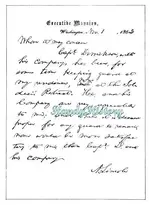 Executive Mansion,
Washington, Nov. 1, 1862
Whom it may concern
Capt. Derickson, with
his company, has been, for
some time keeping guard at
my residence, now at the Sol-
diers Retreat. He, and his
Company are very agreeable
to me, and while it is deemed
proper for any guard to remain,
none would be more satisfac-
tory to me than Capt. D. and
his company.
A. Lincoln